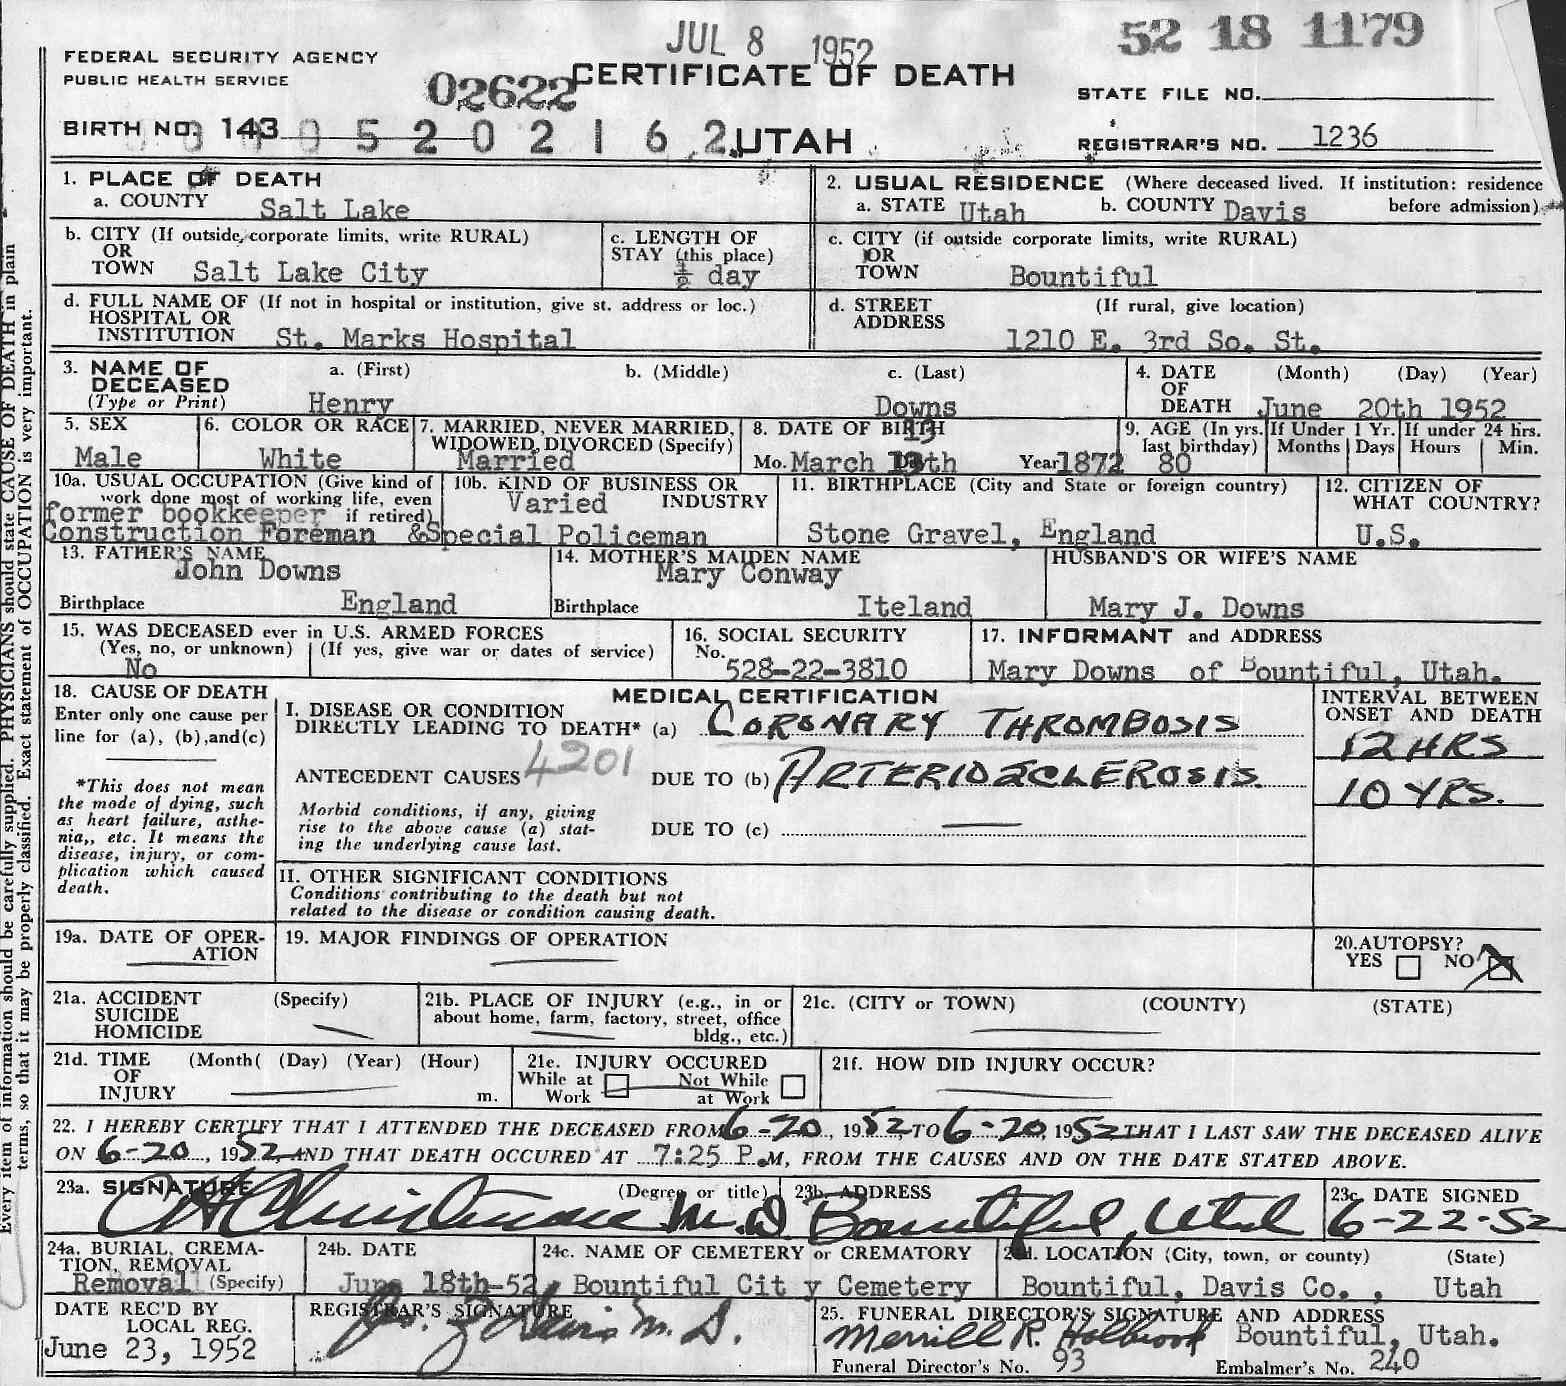 JUL 8 1952
52 18 1179
FEDERAL SECURITY AGENCY
PUBLIC HEALTH SERVICE
02622
CERTIFICATE OF DEATH
STATE FILE NO.
BIRTH NO. 143 0 5 2 0 2 1 6 2 UTAH
REGISTRAR'S NO. 1236
1. PLACE OF DEATH
a. COUNTY Salt Lake
2. USUAL RESIDENCE (Where deceased lived. If institution: residence before admission)
a. STATE Utah b. COUNTY Davis
b. CITY (If outside corporate limits, write RURAL)
OR
TOWN Salt Lake City
c. LENGTH OF
STAY (this place)
½ day
c. CITY (if outside corporate limits, write RURAL)
OR
TOWN Bountiful
d. FULL NAME OF (If not in hospital or institution, give st. address or loc.)
HOSPITAL OR
INSTITUTION St. Marks Hospital
d. STREET (If rural, give location)
ADDRESS
1210 E. 3rd So. St.
3. NAME OF a. (First) b. (Middle) c. (Last)
DECEASED
(Type or Print) Henry Downs
4. DATE (Month) (Day) (Year)
OF
DEATH June 20th 1952
5. SEX
Male
6. COLOR OR RACE
White
7. MARRIED, NEVER MARRIED,
WIDOWED, DIVORCED (Specify)
Married
8. DATE OF BIRTH
13
Mo. March th Year 1872
9. AGE (In yrs. last birthday)
80
If Under 1 Yr.
Months Days
If under 24 hrs.
Hours Min.
10a. USUAL OCCUPATION (Give kind of
work done most of working life, even
if retired)
former bookkeeper
Construction Foreman &Special Policeman
10b. KIND OF BUSINESS OR
INDUSTRY
Varied
11. BIRTHPLACE (City and State or foreign country)
Stone Gravel, England
12. CITIZEN OF
WHAT COUNTRY?
U.S.
13. FATHER'S NAME
John Downs
Birthplace England
14. MOTHER'S MAIDEN NAME
Mary Conway
Birthplace Iteland
HUSBAND'S OR WIFE'S NAME
Mary J. Downs
15. WAS DECEASED ever in U.S. ARMED FORCES
(Yes, no, or unknown) (If yes, give war or dates of service)
No
16. SOCIAL SECURITY
No.
528-22-3810
17. INFORMANT and ADDRESS
Mary Downs of Bountiful, Utah.
18. CAUSE OF DEATH
Enter only one cause per
line for (a), (b),and(c)
*This does not mean
the mode of dying, such
as heart failure, asthe-
nia,, etc. It means the
disease, injury, or com-
plication which caused
death.
MEDICAL CERTIFICATION
I. DISEASE OR CONDITION
DIRECTLY LEADING TO DEATH* (a) CORONARY THROMBOSIS
4201
ANTECEDENT CAUSES DUE TO (b) ARTERIOSCLEROSIS.
Morbid conditions, if any, giving
rise to the above cause (a) stat-
ing the underlying cause last.
DUE TO (c)
INTERVAL BETWEEN
ONSET AND DEATH
12 HRS
10 YRS.
II. OTHER SIGNIFICANT CONDITIONS
Conditions contributing to the death but not
related to the disease or condition causing death.
19a. DATE OF OPER-
ATION
19. MAJOR FINDINGS OF OPERATION
20.AUTOPSY?
YES NO
21a. ACCIDENT (Specify)
SUICIDE
HOMICIDE
21b. PLACE OF INJURY (e.g., in or
about home, farm, factory, street, office
bldg., etc.)
21c. (CITY or TOWN) (COUNTY) (STATE)
21d. TIME (Month( (Day) (Year) (Hour)
OF
INJURY m.
21e. INJURY OCCURED
While at Work Not While at Work
21f. HOW DID INJURY OCCUR?
22. I HEREBY CERTIFY THAT I ATTENDED THE DECEASED FROM 6-20, 1952, TO 6-20, 1952 THAT I LAST SAW THE DECEASED ALIVE
ON 6-20, 1952, AND THAT DEATH OCCURED AT 7:25 P.M, FROM THE CAUSES AND ON THE DATE STATED ABOVE.
23a. SIGNATURE (Degree or title)
M.D.
23b. ADDRESS
Bountiful, Utah
23c. DATE SIGNED
6-22-52
24a. BURIAL, CREMA-
TION, REMOVAL
Removal (Specify)
24b. DATE
June 18th-52
24c. NAME OF CEMETERY or CREMATORY
Bountiful Cit y Cemetery
24d. LOCATION (City, town, or county) (State)
Bountiful, Davis Co. , Utah
DATE REC'D BY
LOCAL REG.
June 23, 1952
REGISTRAR'S SIGNATURE
M.D.
25. FUNERAL DIRECTOR'S SIGNATURE AND ADDRESS
Merrill R. Holbrook Bountiful, Utah.
Funeral Director's No. 93 Embalmer's No. 240
Every item of information should be carefully supplied. PHYSICIANS should state CAUSE OF DEATH in plain
terms, so that it may be properly classified. Exact statement of OCCUPATION is very important.